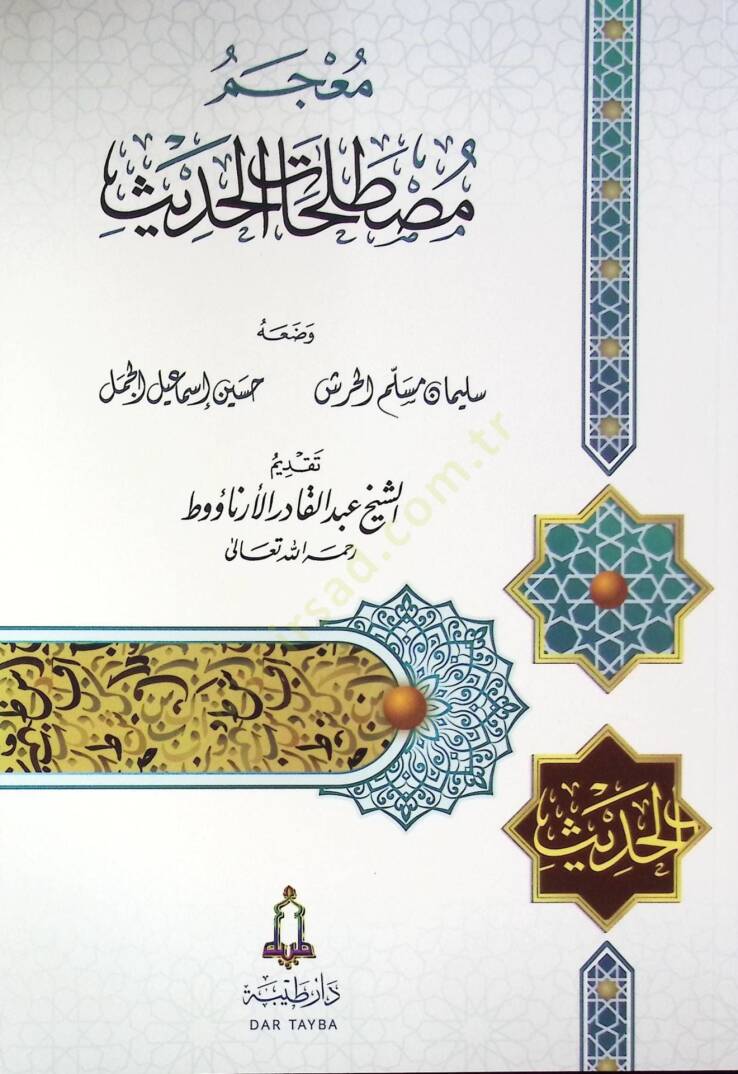 مُعْجَمُ
مُصْطَلَحَاتِ الحَدِيْثِ
وَضَعَهُ
سليمان مسلّم الحرش حسين إسماعيل الجمل
تَقْدِيمُ
الشيخ عبد القادر الأرناؤوط
رحمه الله تعالى
irsad.com.tr
الحَدِيْثِ
طيبة
دَار طَيبَة
DAR TAYBA